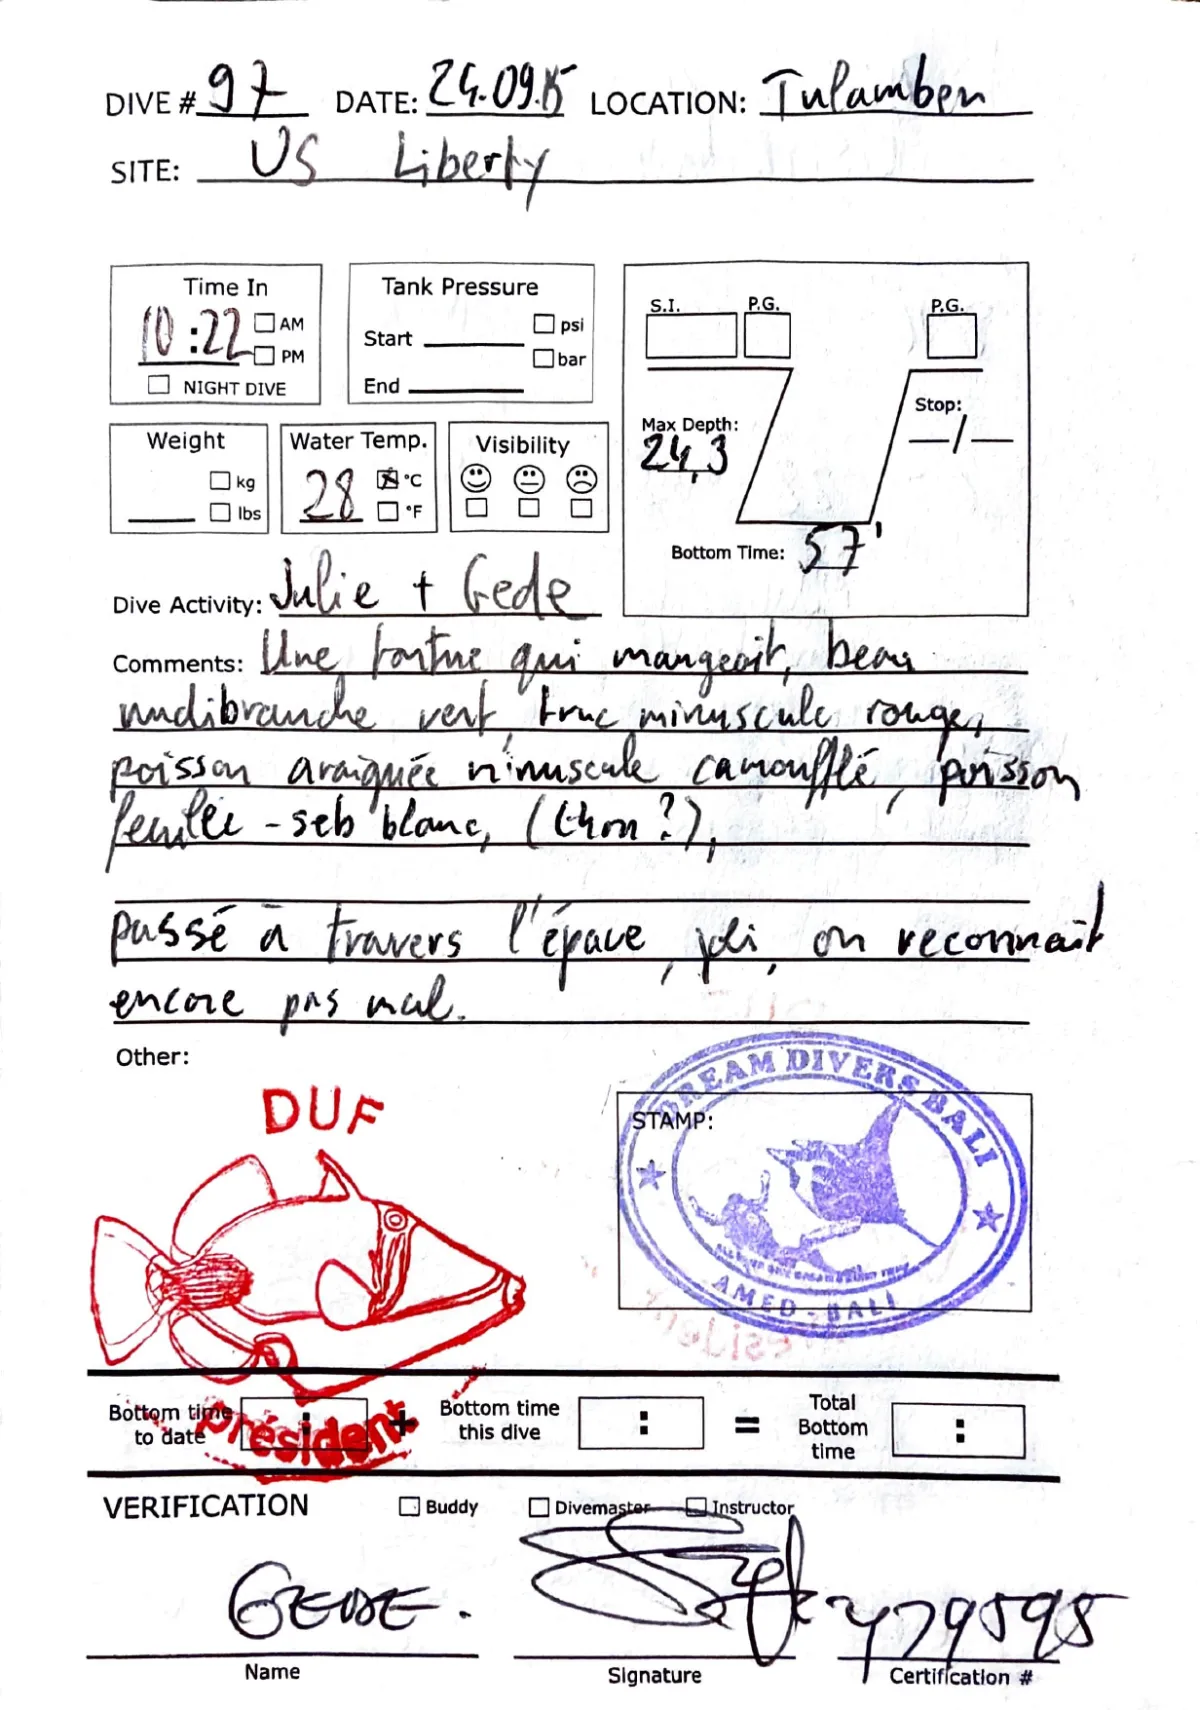 DIVE # 97 DATE: 24.09.15 LOCATION: Tulamben
SITE: US Liberty
Time In
10:22 AM
PM
NIGHT DIVE
Tank Pressure
Start psi
bar
End
S.I. P.G. P.G.
Max Depth:
24,3
Stop:
/
Bottom Time: 57'
Weight
kg
lbs
Water Temp.
28 °C
°F
Visibility
Dive Activity: Julie + Gede
Comments: Une tortue qui mangeait, beau
nudibranche vert, truc minuscule rouge,
poisson araignée minuscule camoufflé, poisson
feuille - seb blanc, (thon?),
passé à travers l'épave, joli, on reconnait
encore pas mal.
Other:
DUF
président
STAMP:
DREAM DIVERS BALI
AMED - BALI
Bottom time
to date : +
Bottom time
this dive : =
Total
Bottom
time :
VERIFICATION Buddy Divemaster Instructor
GEDE.
Name Signature Certification #